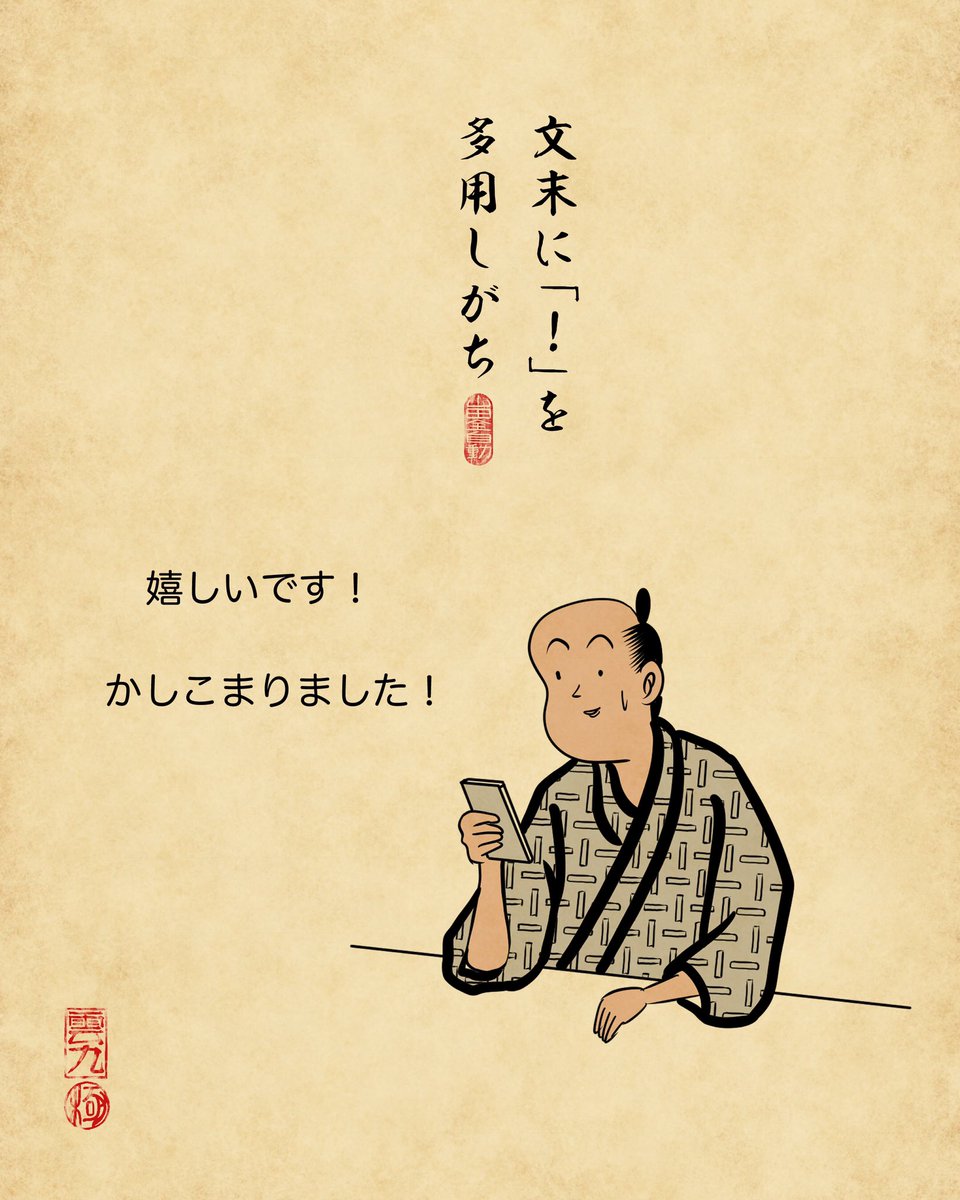 文末に「！」を
多用しがち
嬉しいです！
かしこまりました！